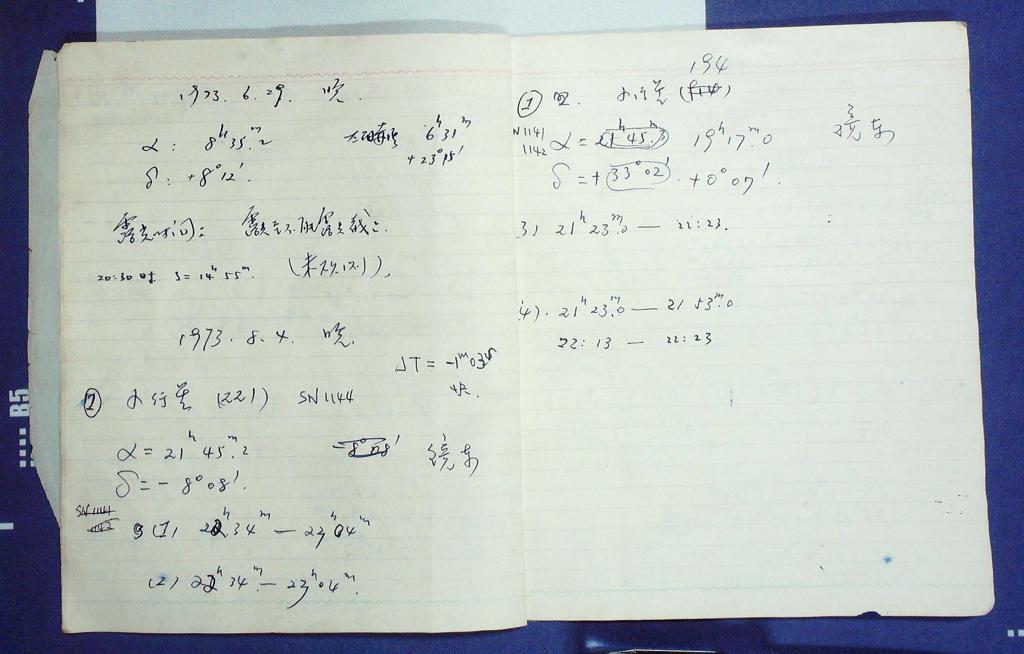 1973. 6. 29. 晚.
α: 8ʰ 35ᵐ.2 6ʰ 31ᵐ
δ: +8°12′. +23°15′
露光时间:
20:30 时 S=14ʰ 55ᵐ.
1973. 8. 4. 晚.
ΔT = -1ᵐ03ˢ
快.
② 小行星 (221) SN1144
α = 21ʰ 45ᵐ.2 -8°08′ 镜东
δ = - 8°08′.
SN1141
1142
(1) 22ʰ 34ᵐ — 23ʰ 04ᵐ
(2) 22ʰ 34ᵐ — 23ʰ 04ᵐ.
194
① 小行星 (914)
N1141
1142
α = 21ʰ 45ᵐ.3 19ʰ 17ᵐ.0 镜东
δ = + 33°02′ . +0°07′.
3) 21ʰ 23ᵐ.0 — 22:23.
4). 21ʰ 23ᵐ.0 — 21 53ᵐ.0
22: 13 — 22:23
B5